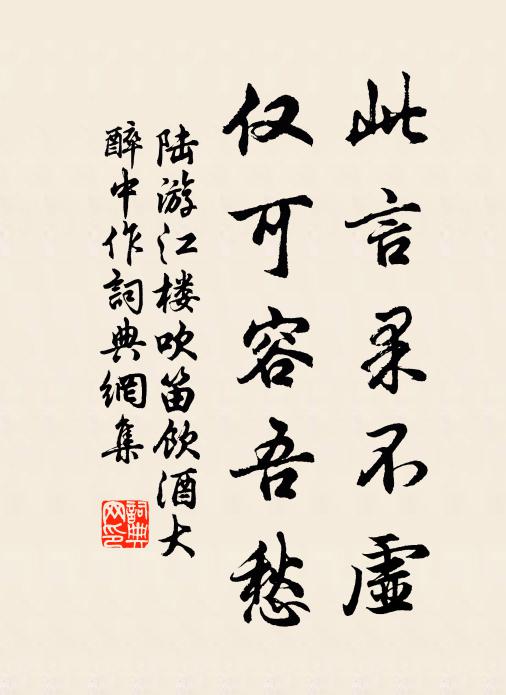 此言果不虚
仅可容吾愁
陆游江楼吹笛饮酒大
醉中作詞典網集
詞典
网印